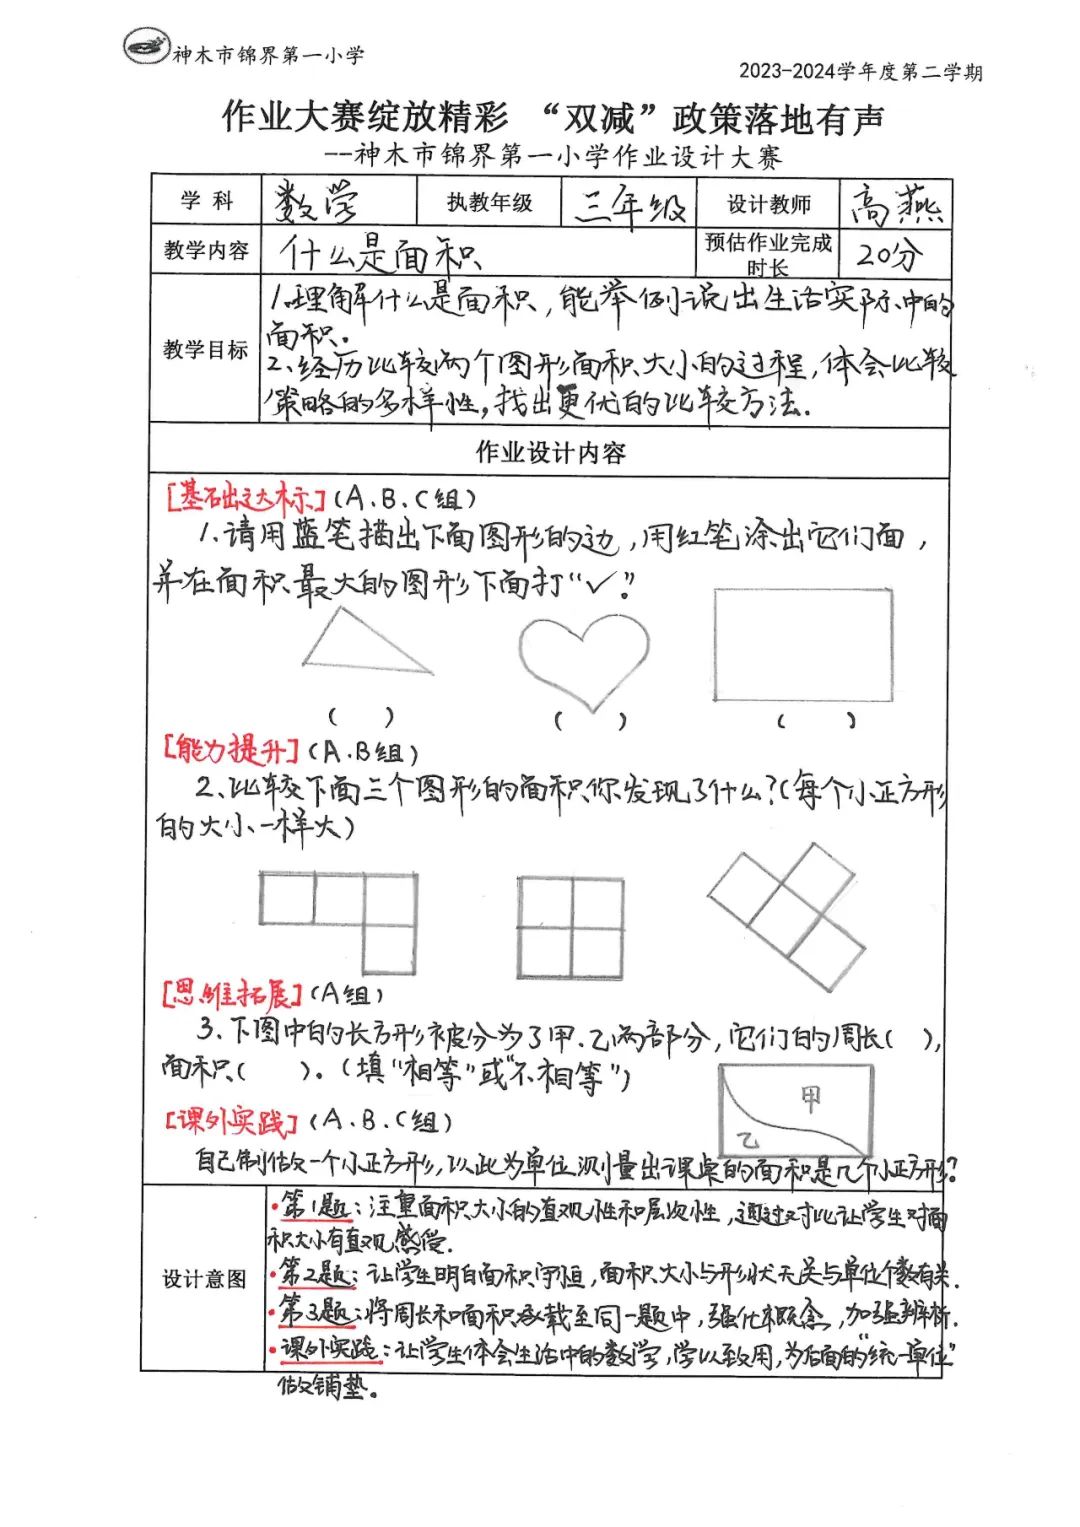 神木市锦界第一小学
2023-2024学年度第二学期
作业大赛绽放精彩 “双减”政策落地有声
--神木市锦界第一小学作业设计大赛
学 科 数学 执教年级 三年级 设计教师 高燕
教学内容 什么是面积 预估作业完成时长 20分
教学目标
1.理解什么是面积,能举例说出生活实际中的
面积。
2、经历比较两个图形面积大小的过程,体会比较
策略的多样性,找出更优的比较方法.
作业设计内容
[基础达标](A.B.C组)
1.请用蓝笔描出下面图形的边,用红笔涂出它们面,
并在面积最大的图形下面打“✓”?
( ) ( ) ( )
[能力提升](A.B组)
2、比较下面三个图形的面积你发现了什么?(每个小正方形
的大小一样大)
[思维拓展](A组)
3.下图中的长方形被分为了甲.乙两部分,它们的周长( ),
面积( )。(填“相等”或“不相等”)
甲
乙
[课外实践](A.B.C组)
自己制做一个小正方形,以此为单位,测量出课桌的面积是几个小正方形?
设计意图
·第1题:注重面积大小的直观性和层次性,通过对比让学生对面
积大小有直观感受.
·第2题:让学生明白面积守恒,面积大小与形状无关与单位个数有关.
·第3题:将周长和面积承载至同一题中,强化概念,加强辨析.
·课外实践:让学生体会生活中的数学,学以致用,为后面的“统一单位”
做铺垫。